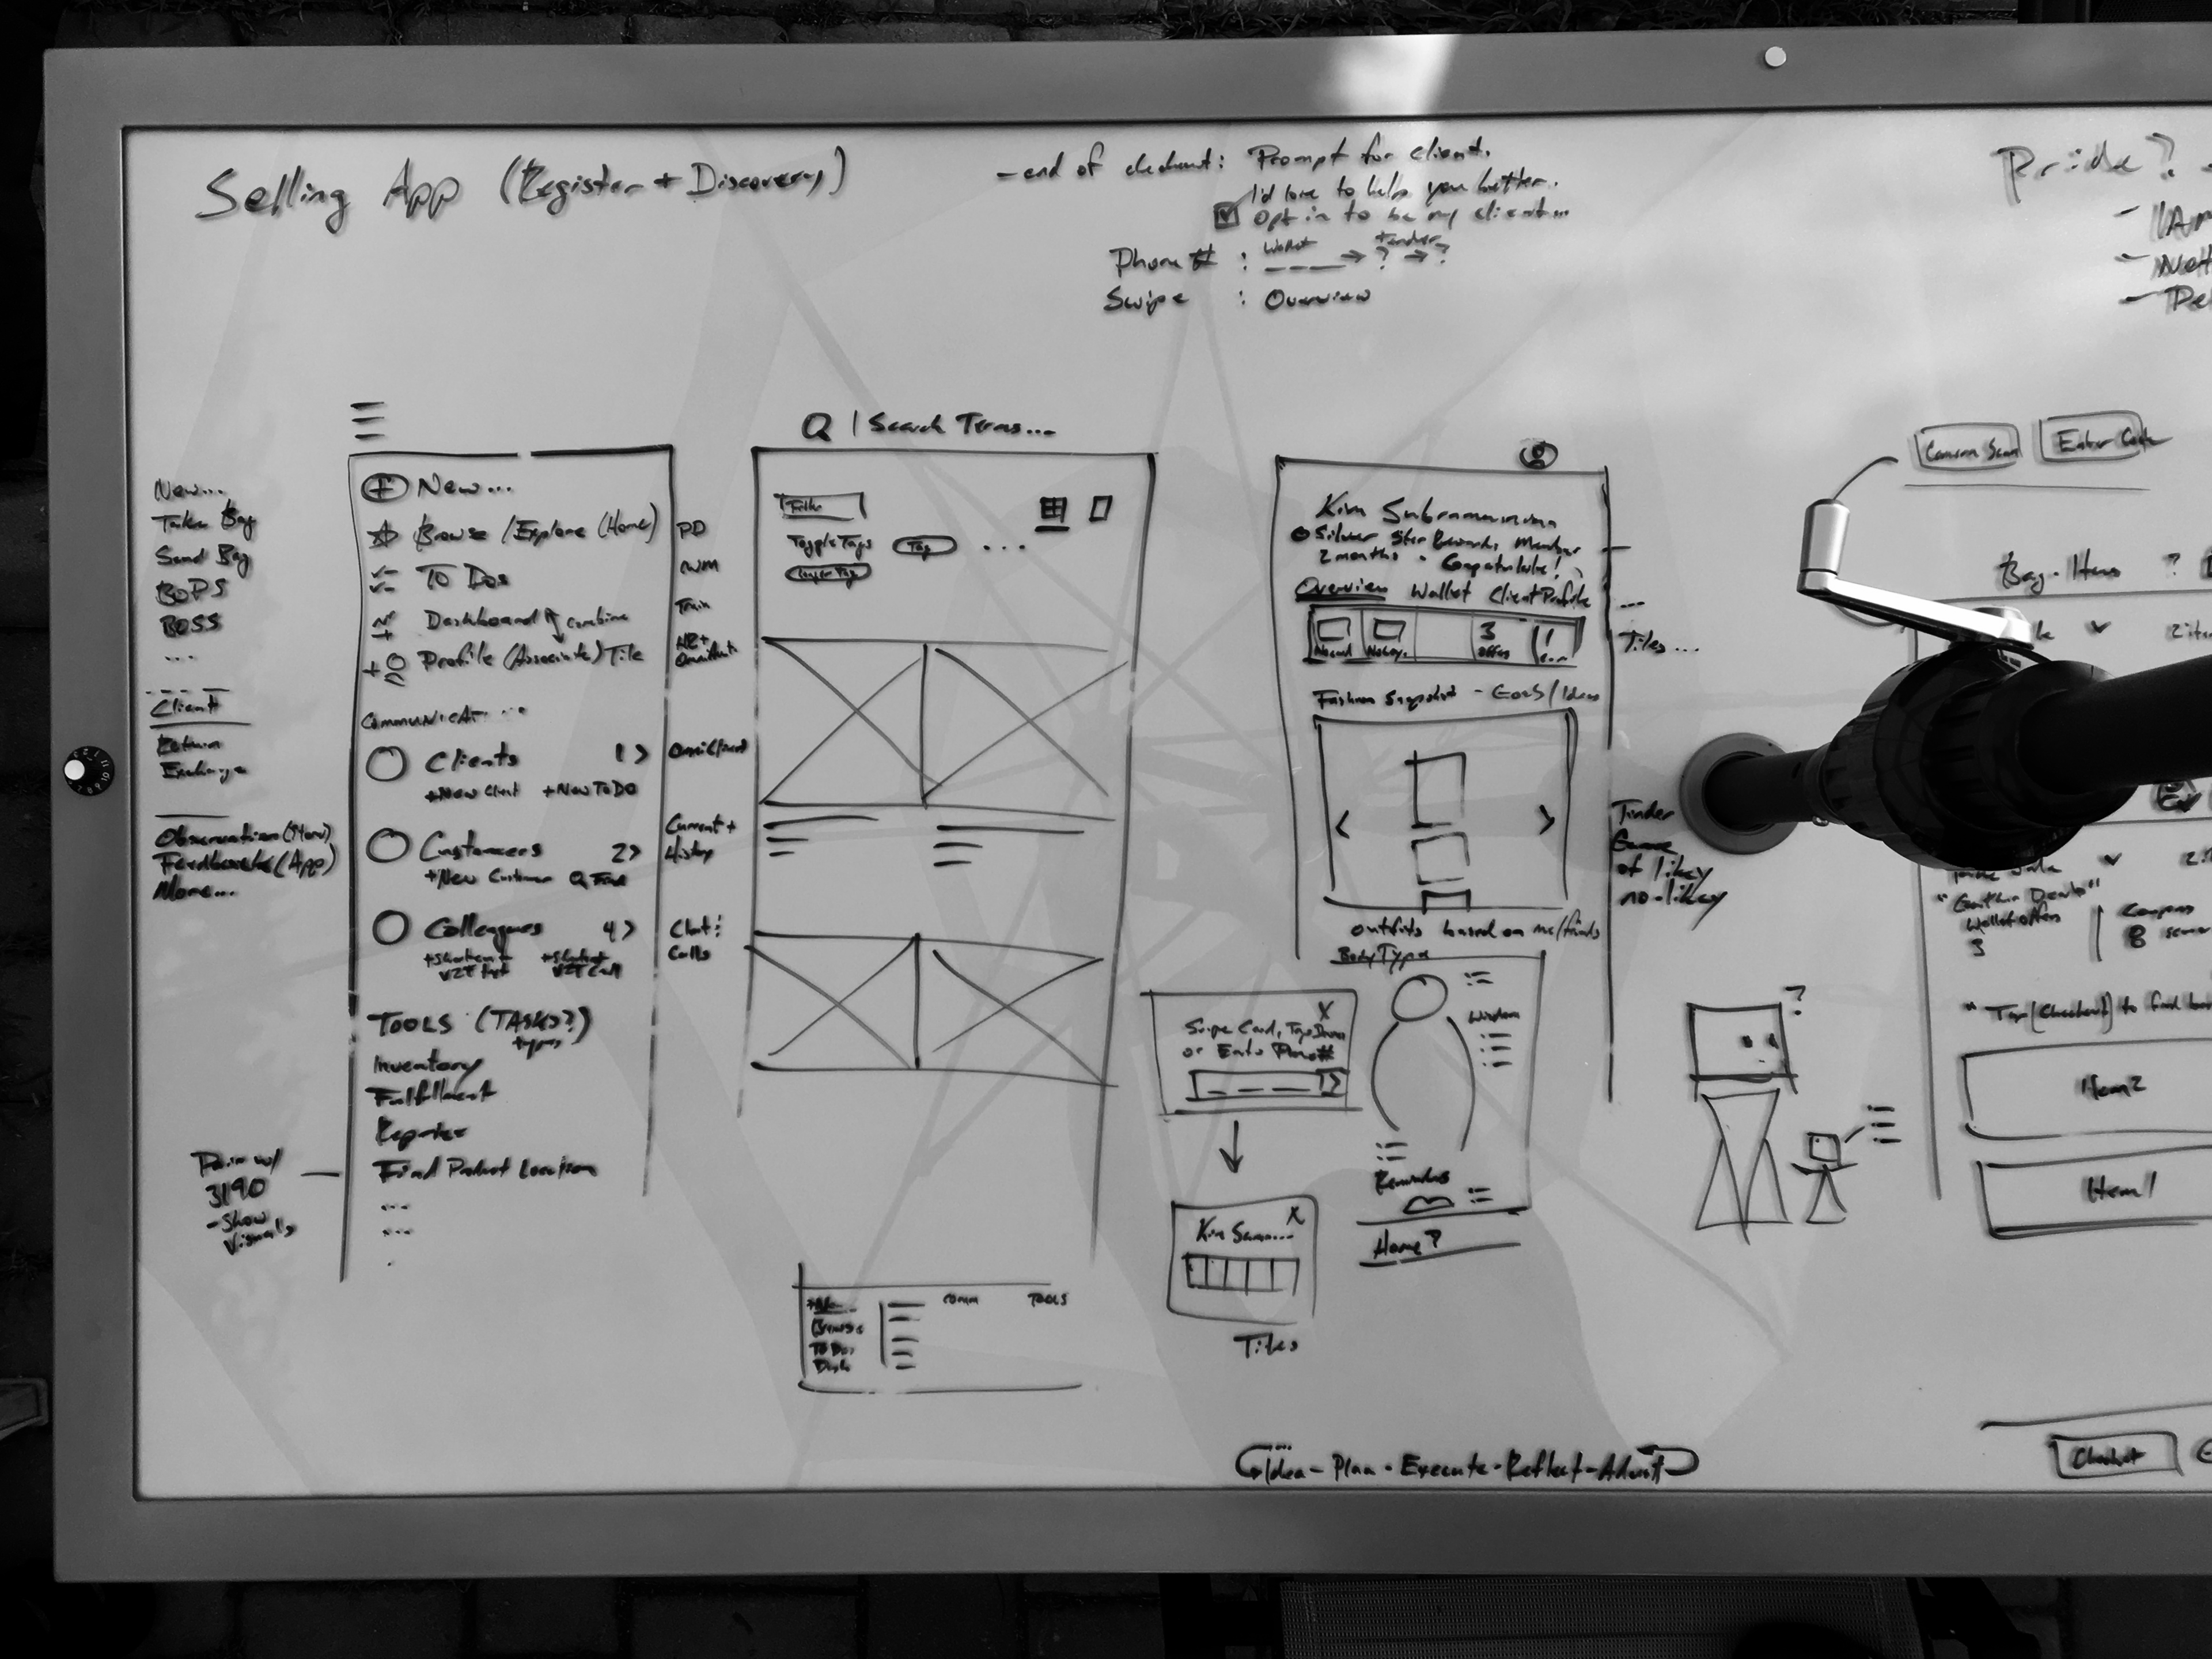 Selling App (Register + Discovery)
- end of checkout: Prompt for client.
I'd love to help you better.
Opt in to be my client...
Phone # : Wallet → ? → ?
tender
Swipe : Overview
Pride?
New...
Take Bag
Send Bag
BOPS
BOSS
...
Client
Return
Exchange
Observation (Store)
Feedback (App)
More...
Pair w/
3190
- Show
Visuals
+ New...
Browse / Explore (Home)
To Dos
Dashboard combine
Profile (Associate) Tile
Communicat...
Clients 1 >
+New Client +New To Do
Customers 2 >
+New Customer Q Find
Colleagues 4 >
TOOLS (TASKS?)
types
Inventory
Fulfillment
Register
Find Product Location
...
...
PD
Train
Current +
History
Chat :
Calls
Q | Search Terms...
Filter
Toggle Tags Tag ...
Longer Tag
Browse
To Dos
Dash
Comm
TOOLS
Kim
Silver Star Rewards Member
2 months - Congratulate!
Overview Wallet Client Profile
3
offers
1
Tiles...
Fashion Snapshot - Goals / Ideas
< >
Tinder
Game
of likey
no-likey
outfits based on me/trends
Body Type
Wisdom
Reminders
Home?
X
Swipe Card,
or Enter Phone #
Kim X
Tiles
?
Idea - Plan - Execute - Reflect -
Camera Scan
Enter Code
Bag - Items ?
Wallet offers
3
Coupons
8
" Tap [Checkout] to
Item 2
Item 1
Checkout